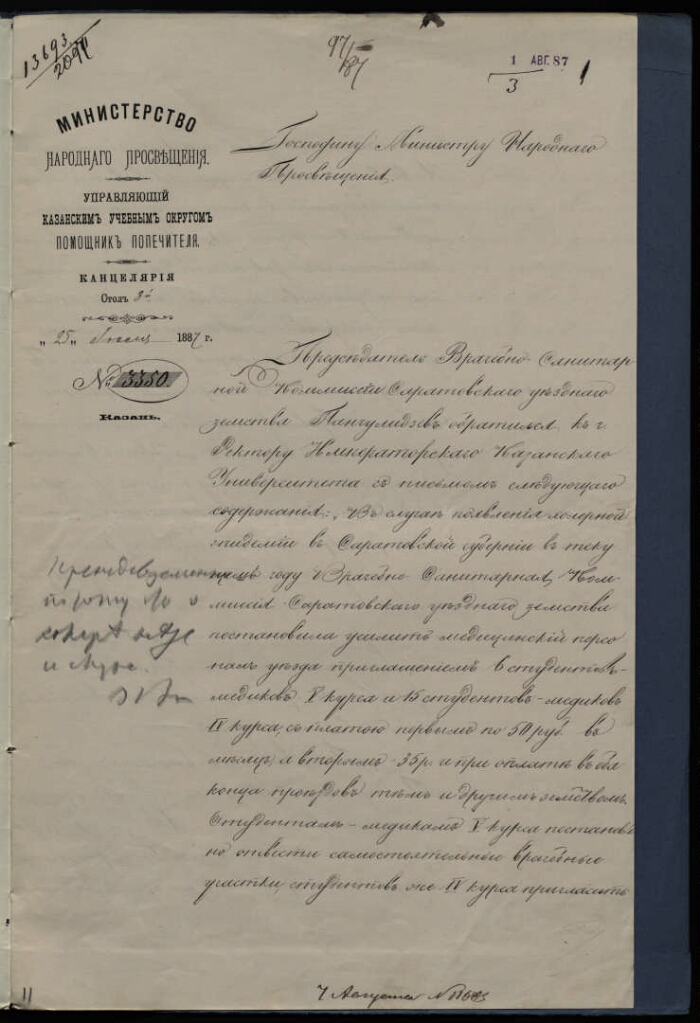 13693
2097
97
87
1 АВГ. 87
3
1
МИНИСТЕРСТВО
НАРОДНАГО ПРОСВѢЩЕНІЯ.
УПРАВЛЯЮЩІЙ
КАЗАНСКИМЪ УЧЕБНЫМЪ ОКРУГОМЪ
ПОМОЩНИКЪ ПОПЕЧИТЕЛЯ.
КАНЦЕЛЯРІЯ
Столъ 3й
„ 25 „ Іюля 1887 г.
№ 3350.
Казань.
Господину Министру Народнаго
Просвѣщенія.
Предсѣдатель Врачебно-Санитар-
ной Коммисіи Саратовскаго уѣзднаго
земства Панчулидзевъ обратился къ г.
Ректору Императорскаго Казанскаго
Университета съ письмомъ слѣдующаго
содержанія: „Въ случаѣ появленія холерной
эпидеміи въ Саратовской губерніи въ теку
щемъ году Врачебно-Санитарная Ком-
мисія Саратовскаго уѣзднаго земства
постановила усилить медицинскій персо
налъ уѣзда приглашеніемъ 6 студентовъ-
медиковъ V курса и 15 студентовъ-медиковъ
IV курса, съ платою первымъ по 50 руб. въ
мѣсяцъ, а вторымъ 35 р. и при оплатѣ въ оба
конца проѣздовъ тѣмъ и другимъ земствомъ.
Студентамъ-медикамъ V курса постановле
но отвести самостоятельные врачебные
участки, студентовъ же IV курса пригласить
7 Августа №
11